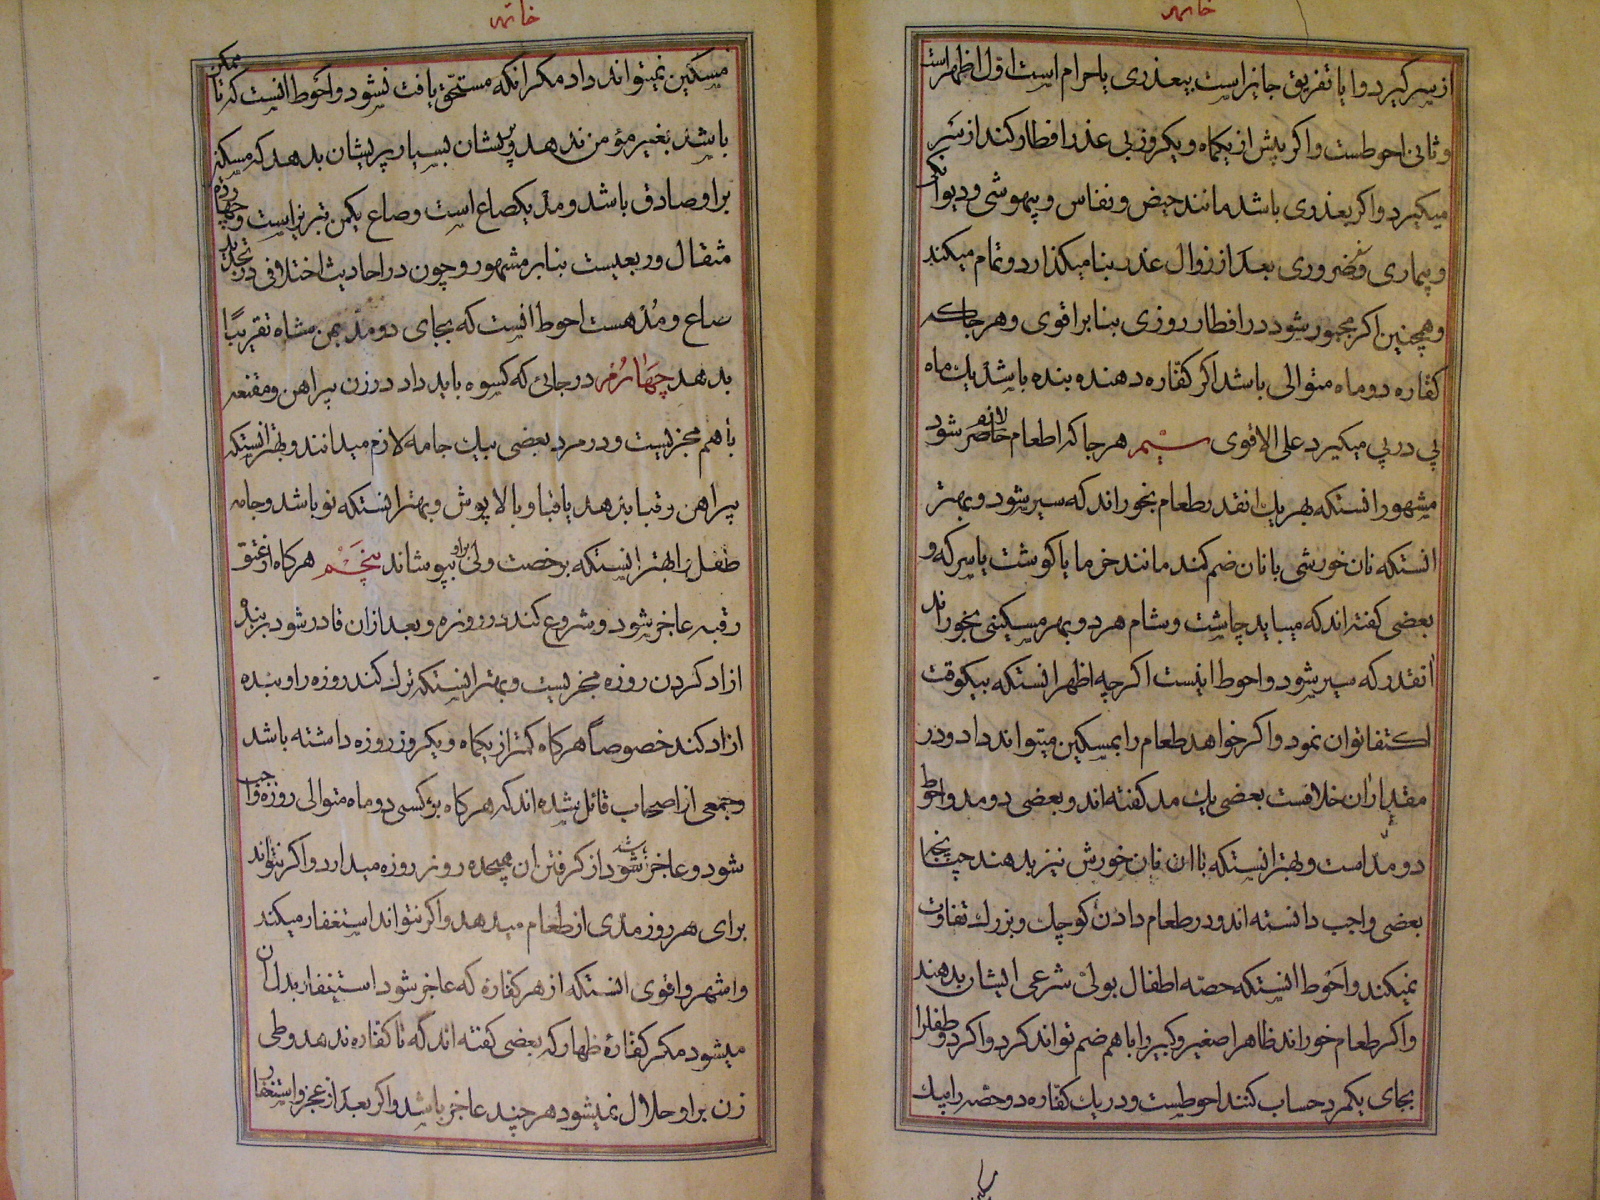 خاتمه
از سر گیرد و ایا تفریق جایز است بیعذری یا حرام است اول اظهر است
و ثانی احوطست و اکر پیش از یکماه و یکروز بی عذر افطار کند از سر
میکیرد و اکر بعذری باشد مانند حیض و نفاس و بیهوشی و دیوانکی
و بیماری و سفر ضروری بعد از زوال عذر بنا میکذارد و تمام میکند
و همچنین اکر مجبور شود در افطار روزی بنابر اقوی و هر جا که
کفاره دو ماه متوالی باشد اکر کفاره دهنده بنده باشد یك ماه
پی در پی میکیرد علی الاقوی سیم هر جا که اطعام لازم شود
مشهور انستکه بهر یك انقدر طعام بخوراند که سیر شود و بهتر
انستکه نان خورشی با نان ضم کند مانند خرما یا کوشت یا سرکه و
بعضی کفته اند که میباید چاشت و شام هر دو بهر مسکینی بخوراند
انقدر که سیر شود و احوط اینست اکرچه اظهر انستکه بیکوقت
اکتفا توان نمود و اکر خواهد طعام را بمسکین میتواند داد و در
مقدار ان خلافست بعضی یك مد کفته اند و بعضی دو مد و احوط
دو مد است و بهتر انستکه با ان نان خورش نیز بدهند چنانچه
بعضی واجب دانسته اند و در طعام دادن کوچك و بزرك تفاوت
نمیکند و احوط انستکه حصه اطفال بولی شرعی ایشان بدهند
و اکر طعام خوراند ظاهرا صغیر و کبیر را با هم ضم تواند کرد و اکر دو طفل را
بجای یکمرد حساب کنند احوطست و در یك کفاره دو حصه را بیك
خاتمه
مسکین نمیتواند داد مکر انکه مستحق یافت نشود و احوط انست که تا ممکن
باشد بغیر مؤمن ندهد و پریشان بسیار پریشان بدهد که مسکین
بر او صادق باشد و مد یکصاع است و صاع یکمن تبریز است و چهارده
مثقال و ربعیست بنابر مشهور و چون در احادیث اختلافی در تحدید
صاع و مُد هست احوط انست که بجای دو مد بمن شاه تقریبًا
بدهد چهارم در جائی که کسوه باید داد در زن پیراهن و مقنعه
با هم مجزیست و در مرد بعضی بیك جامه لازم میدانند و بهتر انستکه
پیراهن و قبا بدهد یا قبا و بالاپوش و بهتر انستکه نو باشد و جامه
طفل را بهتر انستکه برخصت ولی براو بپوشاند پنجم هرکاه از عتق
رقبه عاجز شود و شروع کند در روزه و بعد از ان قادر شود بر بنده
ازاد کردن روزه مجزیست و بهتر انستکه ترك کند روزه را و بنده
ازاد کند خصوصاً هرکاه کمتر از یکماه و یکروز روزه داشته باشد
و جمعی از اصحاب قائل شده اند که هرکاه بر کسی دو ماه متوالی روزه واجب
شود و عاجز شده باشد از کرفتن ان هیجده روز روزه میدارد و اکر نتواند
برای هر روز مدی از طعام میدهد و اکر نتواند استغفار میکند
و اشهر و اقوی انستکه از هر کفاره که عاجز شود استغفار بدل ان
میشود مکر کفارهٔ ظهار که بعضی کفته اند که تا کفاره ندهد وطی
زن بر او حلال نمیشود هر چند عاجز باشد و اکر بعد از عجز و استغفار